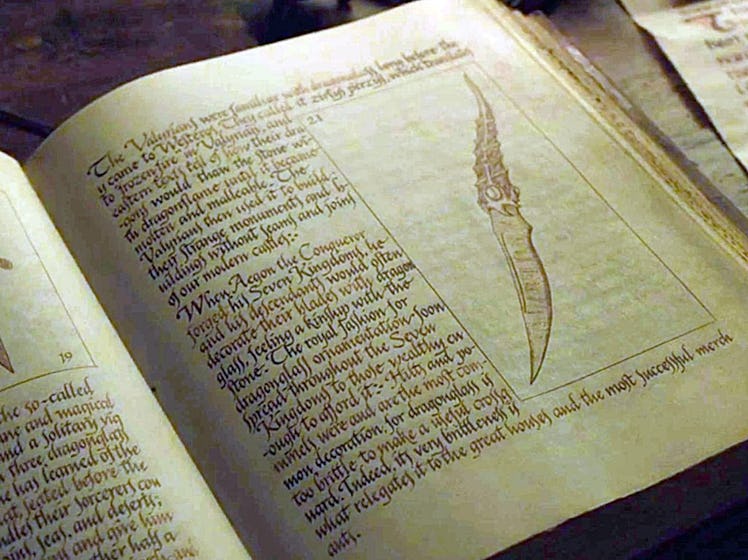 19
he so-called
and magical
nd a solitary
three dragonglass
he has learned of the
not seated before the
their sorcerers cou
seas, and deserts;
and give him
half a
The Valyrians were familiar with dragonglass long before the
y came to Westeros. They called it zīrtys perzys, which translates
to frozen fire in Valyrian, and
21
eastern tales tell of how their dra
gons would thaw the stone wi
th dragonflame until it became
molten and malleable. The
Valyrians then used it to build
their strange monuments and b
uildings without seams and joints
of our modern castles.
When Aegon the Conqueror
forged his Seven Kingdoms, he
and his descendants would often
decorate their blades with dragon
glass, feeling a kinship with the
stone. The royal fashion for
dragonglass ornamentation soon
spread throughout the Seven
Kingdoms to those wealthy en
ough to afford it. Hilts and po
mmels were and are the most com-
mon decoration for dragonglass is
too brittle to make a useful cross
guard. Indeed, its very brittleness is
what relegates it to the great houses and the most successful merch
ants.